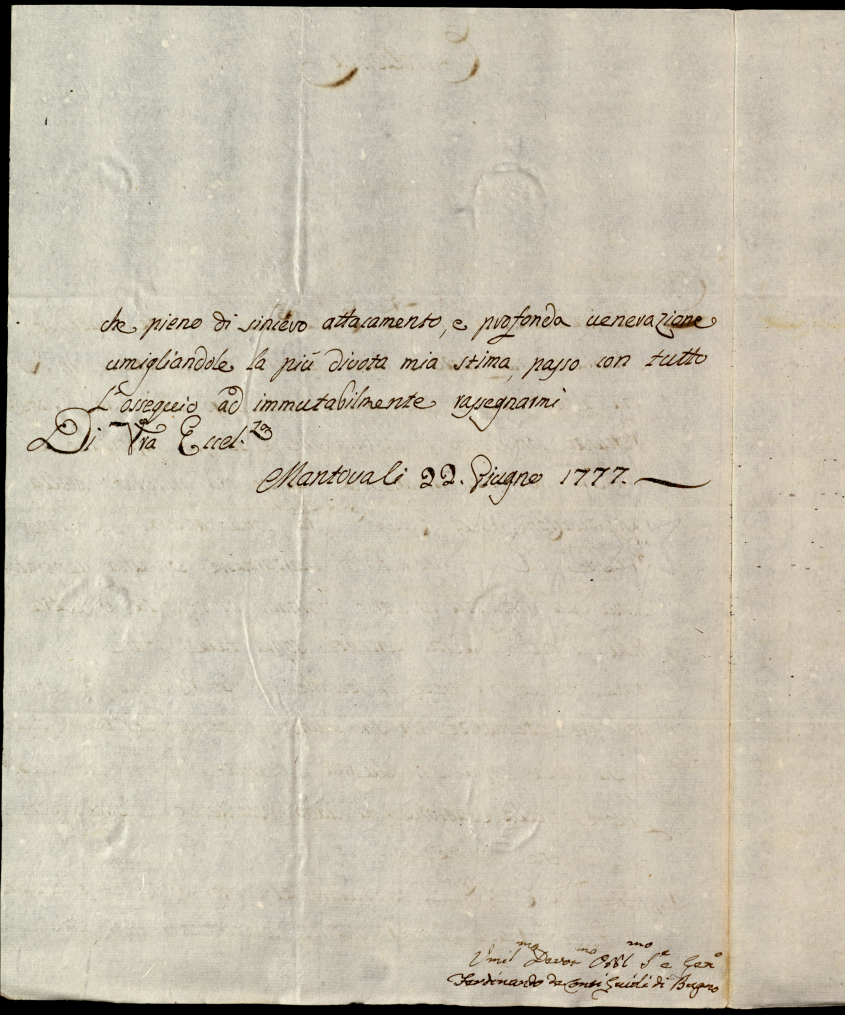 che pieno di sincero attacamento, e profonda venerazione
umigliandole la più divota mia stima, passo con tutto
L'ossequio ad immutabilmente rassegnarmi
Di Vra Eccel.za
Mantova li 22. Giugno 1777.
Umilma Devotmo Obblmo Se e Sero
Ferdinando da Conti Guidi di Bagno